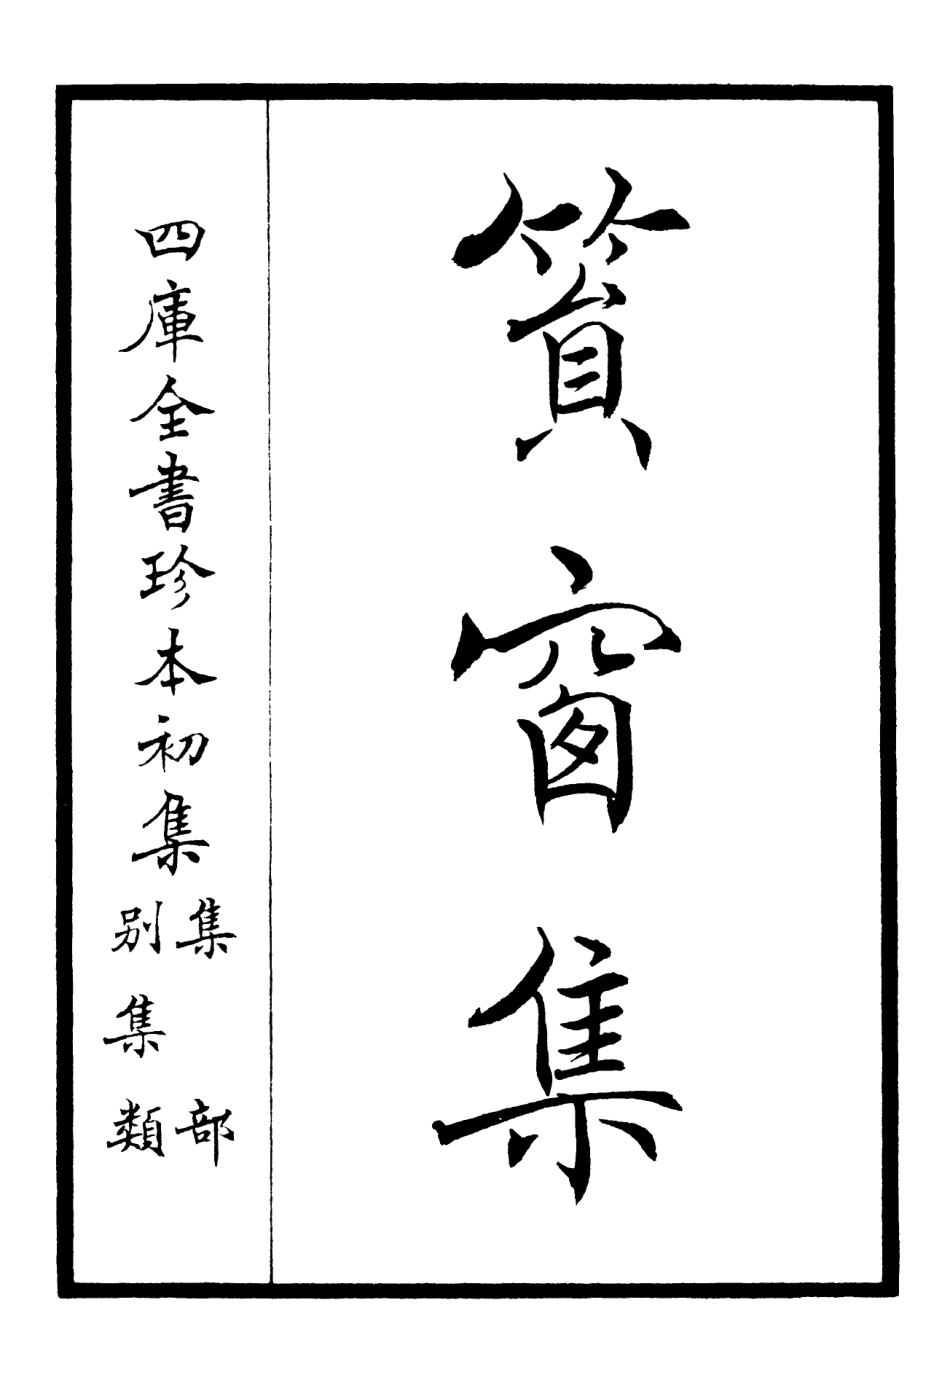 篔窗集
四庫全書珍本初集
集部
別集類